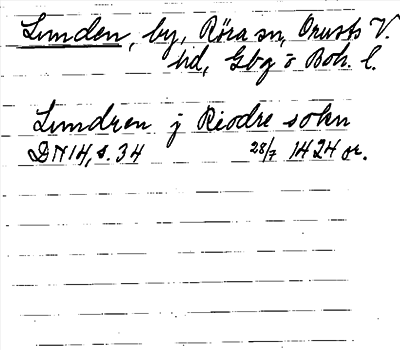 Lunden, by, Röra sn, Orusts V.
hd, Gbg o Boh. l.
Lundren j Reodre sokn
DN 14, s. 34 28/7 1424 or.